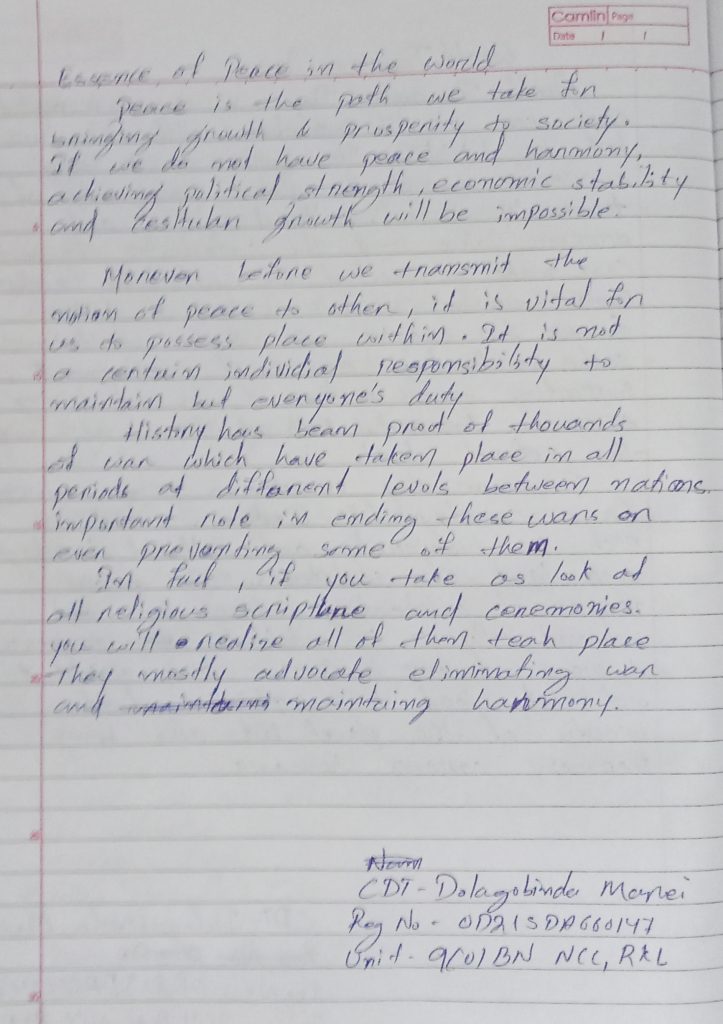 Camlin Page
Date / /
Essence of Peace in the World
Peace is the path we take for
bringing growth & prusperity to society.
If we do not have peace and harmony,
achieving political strength, economic stability
and growth will be impossible.
Moreover before we transmit the
of peace to other, it is vital for
us to possess place within. It is not
a certain individial responsibility to
maintain but everyone's duty
History has bean proof of thouands
of war which have taken place in all
periods at different levols between nations
important role in ending these wars or
even prevanting some of them.
In fact, if you take as look at
all religious scripture and ceremonies.
you will realize all of them teah place
They mostly advocate eliminating war
and maintaing harmony.
CDT - Dolagobinda
Reg No - OD21SDA660147
Unit - 9(O) BN NCC, RKL